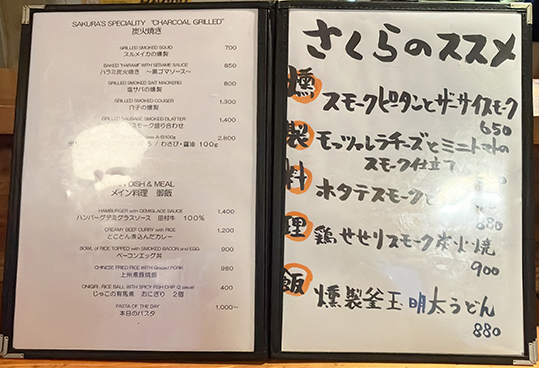 SAKURA'S SPECIALITY "CHARCOAL GRILLED"
炭火焼き
GRILLED SMOKED SQUID 700
スルメイカの燻製
BAKED "HARAMI" WITH SESAME SAUCE 850
ハラミ炭火焼き ～黒ゴマソース～
GRILLED SMOKED SALT MACKEREL 800
塩サバの燻製
GRILLED SMOKED CONGER 1,300
穴子の燻製
GRILLED SAUSAGE SMOKED PLATTER 1,400
スモーク盛り合わせ
100g 2,800
わさび・醤油 100g
DISH & MEAL
メイン料理 御飯
HAMBURGER with DEMIGLACE SAUCE 1,400
ハンバーグデミグラスソース 田村牛 100%
CREAMY BEEF CURRY with RICE 1,200
とことん煮込んだカレー
BOWL of RICE TOPPED with SMOKED BACON and EGG 900
ベーコンエッグ丼
CHINESE FRIED RICE WITH Ground PORK 980
上州煮豚焼飯
ONIGIRI, RICE BALL WITH SPICY FISH CHIP (2 piece) 400
じゃこの有馬煮 おにぎり 2個
PASTA OF THE DAY 1,000～
本日のパスタ
さくらのススメ
燻製料理飯
スモークピータンとザーサイスモーク
650
モッツァレラチーズとミニトマトの
スモーク仕立て
ホタテスモークと
880
鶏せせりスモーク炭火焼
900
燻製釜玉明太うどん
880